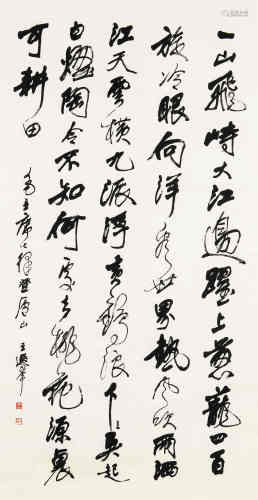 一山飛峙大江邊躍上葱龍四百
旋冷眼向洋看世界熱風吹雨洒
江天雲橫九派浮黃鶴浪下三吳起
白煙陶令不知何處去桃花源裏
可耕田
毛主席七律登廬山 王遐舉